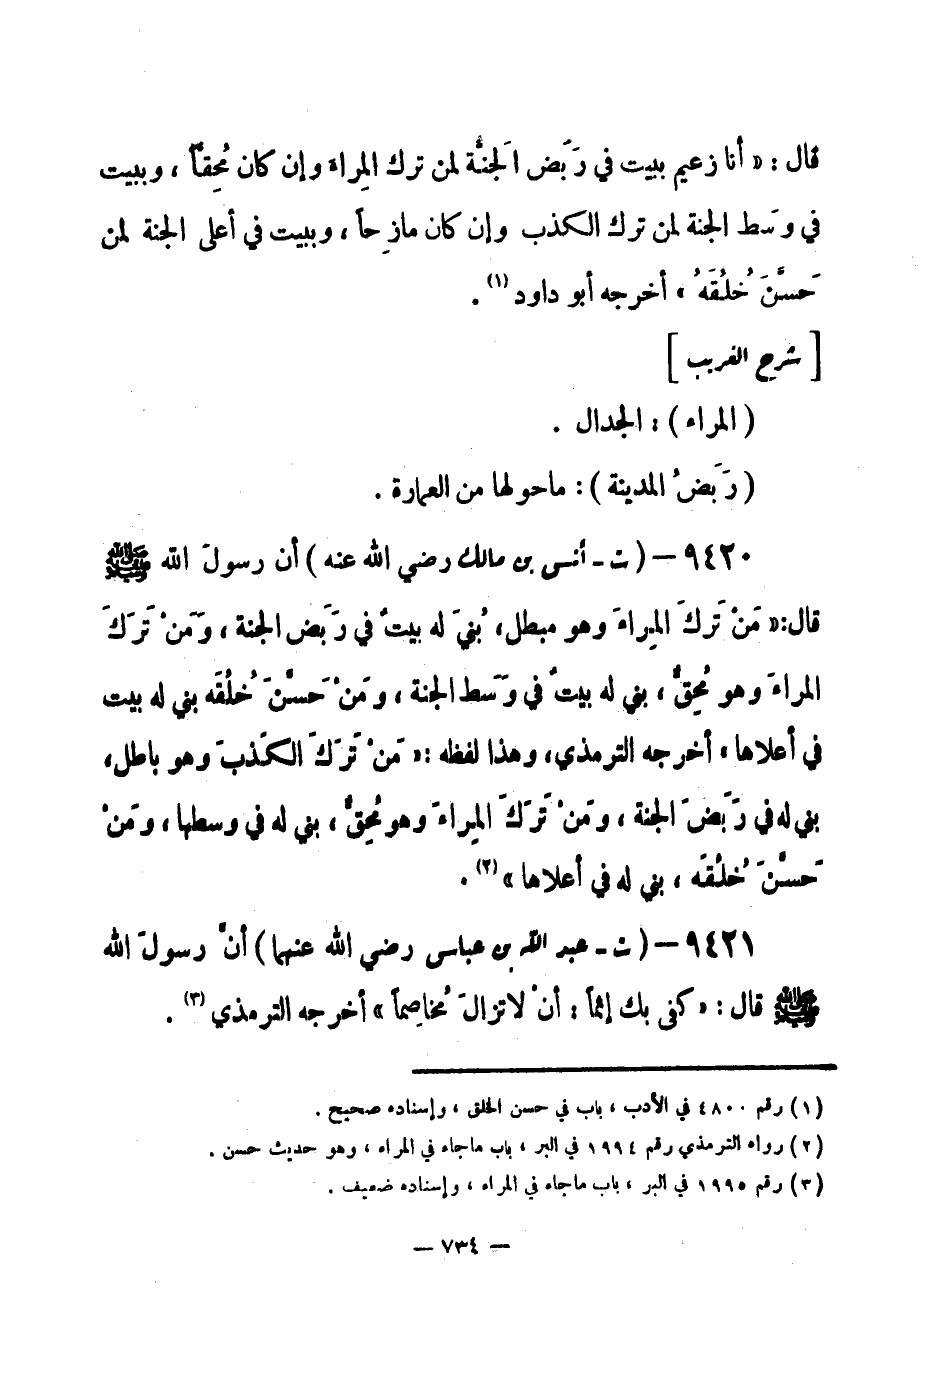 قال : « أنا زعيم ببيت في رَبَض الجنَّة لمن ترك المِراة وإن كان مُحِقاً ، وببيت
في وسَط الجنة لمن ترك الكذب وإن كان مازِحاً ، وببيت في أعلى الجنة لمن
حَسَّنَ خُلُقَهُ » أخرجه أبو داود (١) .
[ شرح الغريب ]
( المراء ) : الجدال .
( رَبَضُ المدينة ) : ماحولها من العمارة .
٩٤٢٠ – ( ت - أنس بن مالك رضي الله عنه ) أن رسولَ الله ﷺ
قال : « مَنْ تَركَ المِراءَ وهو مبطل ، بُنيَ له بيتٌ في رَبَض الجنة ، وَمَنْ تَرَكَ
المراءَ وهو مُحِقٌّ ، بني له بيتٌ في وَسَط الجنة ، ومَنْ حَسَّنَ خُلُقَه بني له بيت
في أعلاها » أخرجه الترمذي ، وهذا لفظه : « مَنْ تَرَكَ الكَذبَ وهو باطل ،
بني له في رَبَضَ الجنة ، ومَنْ تَرَكَ المِراءَ وهو مُحِقٌّ ، بني له في وسطها ، ومَنْ
حَسَّنَ خُلُقَه ، بني له في أعلاها » (٢) .
٩٤٢١ – ( ت - عبد الله بن عباس رضي الله عنهما ) أنَّ رسولَ الله
ﷺ قال : « كفى بك إثماً : أنْ لاتزالَ مُخاصِماً » أخرجه الترمذي (٣) .
(١) رقم ٤٨٠٠ في الأدب ، باب في حسن الخلق ، وإسناده صحيح .
(٢) رواه الترمذي رقم ١٩٩٤ في البر ، باب ماجاء في المراء ، وهو حديث حسن .
(٣) رقم ١٩٩٥ في البر ، باب ماجاء في المراء ، وإسناده ضعيف .
– ٧٣٤ –